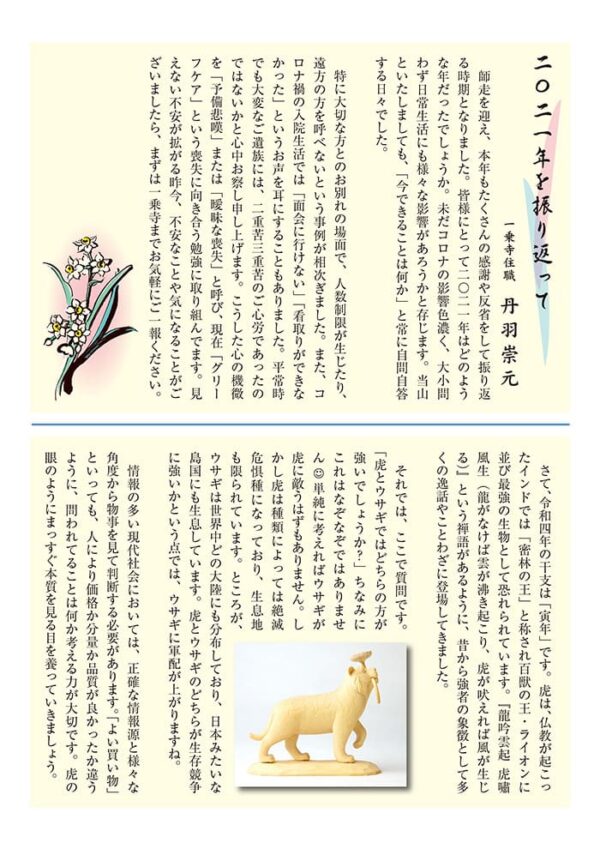 二〇二一年を振り返って
一乗寺住職　丹羽崇元
師走を迎え、本年もたくさんの感謝や反省をして振り返
る時期となりました。皆様にとって二〇二一年はどのよう
な年だったでしょうか。未だコロナの影響色濃く、大小問
わず日常生活にも様々な影響があろうかと存じます。当山
といたしましても、「今できることは何か」と常に自問自答
する日々でした。
特に大切な方とのお別れの場面で、人数制限が生じたり、
遠方の方を呼べないという事例が相次ぎました。また、コ
ロナ禍の入院生活では「面会に行けない」「看取りができな
かった」というお声を耳にすることもありました。平常時
でも大変なご遺族には、二重苦三重苦のご心労であったの
ではないかと心中お察し申し上げます。こうした心の機微
を「予備悲嘆」または「曖昧な喪失」と呼び、現在「グリー
フケア」という喪失に向き合う勉強に取り組んでます。見
えない不安が拡がる昨今、不安なことや気になることがご
ざいましたら、まずは一乗寺までお気軽にご一報ください。
さて、令和四年の干支は「寅年」です。虎は、仏教が起こっ
たインドでは「密林の王」と称され百獣の王・ライオンに
並び最強の生物として恐れられています。『龍吟雲起 虎嘯
風生（龍がなけば雲が沸き起こり、虎が吠えれば風が生じ
る）』という禅語があるように、昔から強者の象徴として多
くの逸話やことわざに登場してきました。
それでは、ここで質問です。
「虎とウサギではどちらの方が
強いでしょうか？」ちなみに
これはなぞなぞではありませ
ん☺単純に考えればウサギが
虎に敵うはずもありません。し
かし虎は種類によっては絶滅
危惧種になっており、生息地
も限られています。ところが、
ウサギは世界中どの大陸にも分布しており、日本みたいな
島国にも生息しています。虎とウサギのどちらが生存競争
に強いかという点では、ウサギに軍配が上がりますね。
情報の多い現代社会においては、正確な情報源と様々な
角度から物事を見て判断する必要があります。「よい買い物」
といっても、人により価格か分量か品質が良かったか違う
ように、問われてることは何か考える力が大切です。虎の
眼のようにまっすぐ本質を見る目を養っていきましょう。